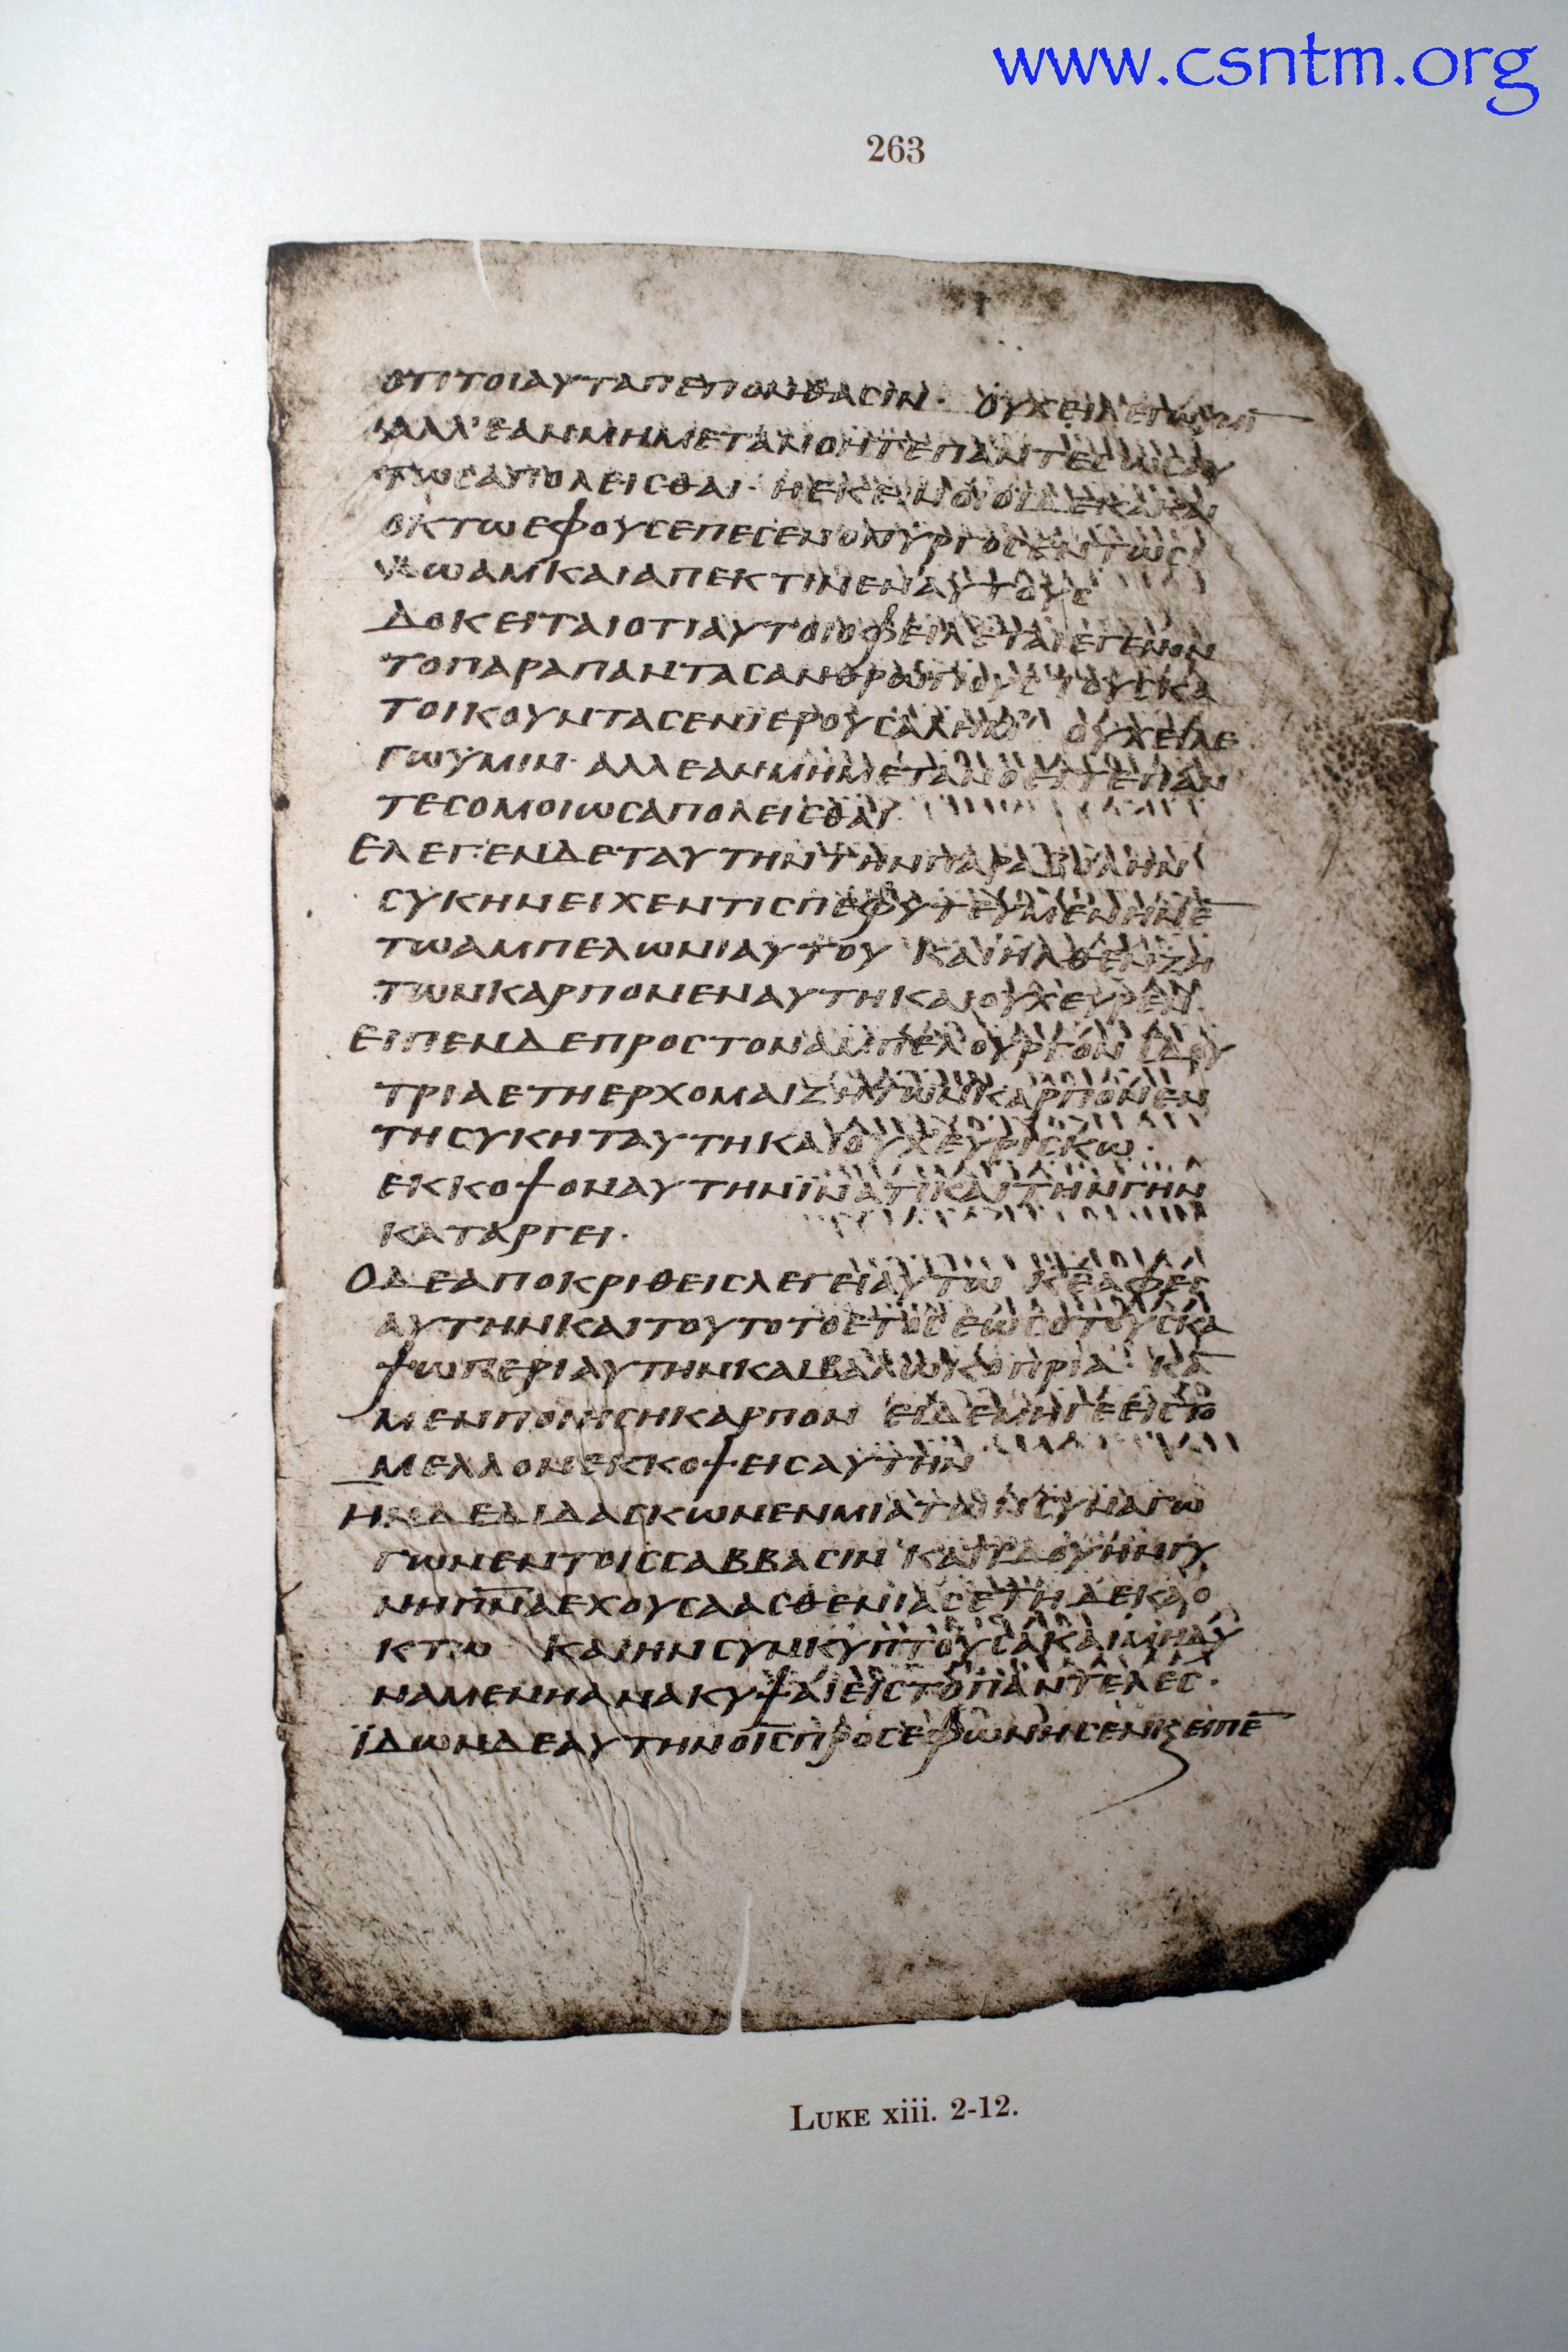 www.csntm.org
263
ΟΤΙΤΟΙΑΥΤΑΠΕΠΟΝΘΑCΙΝ· ΟΥΧΕΙΛΕΓΩΫΜΙ̅
ΑΛΛ'ΕΑΝΜΗΜΕΤΑΝΟΗΤΕΠΑΝΤΕCΩCΑΥ
ΤΩCΑΠΟΛΕΙCΘΑΙ· ΗΕΚΕΙΝΟΙΟΙΔΕΚΑΚΑΙ
ΟΚΤΩΕΦΟΥCΕΠΕCΕΝΟΠΥΡΓΟCΕΝΤΩC
ΛΩΑΜΚΑΙΑΠΕΚΤΙΝΕΝΑΥΤΟΥC
ΔΟΚΕΙΤΑΙΟΤΙΑΥΤΟΙΟΦΕΙΛΕΤΑΙΕΓΕΝΟΝ
ΤΟΠΑΡΑΠΑΝΤΑCΑΝΘΡΩΠΟΥCΤΟΥCΚΑ
ΤΟΙΚΟΥΝΤΑCΕΝΪΕΡΟΥCΑΛΗΜ ΟΥΧΕΙΛΕ
ΓΩΫΜΙΝ· ΑΛΛΕΑΝΜΗΜΕΤΑΝΟΕΙΤΕΠΑΝ
ΤΕCΟΜΟΙΩCΑΠΟΛΕΙCΘΑΙ·
ΕΛΕΓΕΝΔΕΤΑΥΤΗΝΤΗΝΠΑΡΑΒΟΛΗΝ
CΥΚΗΝΕΙΧΕΝΤΙCΠΕΦΥΤΕΥΜΕΝΗΝΕ̅
ΤΩΑΜΠΕΛΩΝΙΑΥΤΟΥ ΚΑΙΗΛΘΕΝΖΗ
ΤΩΝΚΑΡΠΟΝΕΝΑΥΤΗΚΑΙΟΥΧΕΥΡΕΝ·
ΕΙΠΕΝΔΕΠΡΟCΤΟΝΑΜΠΕΛΟΥΡΓΟΝ ΙΔΟΥ
ΤΡΙΑΕΤΗΕΡΧΟΜΑΙΖΗΤΩΝΚΑΡΠΟΝΕΝ
ΤΗCΥΚΗΤΑΥΤΗΚΑΙΟΥΧΕΥΡΙCΚΩ·
ΕΚΚΟΨΟΝΑΥΤΗΝΪΝΑΤΙΚΑΙΤΗΝΓΗΝ
ΚΑΤΑΡΓΕΙ·
ΟΔΕΑΠΟΚΡΙΘΕΙCΛΕΓΕΙΑΥΤΩ ΚΕΑΦΕC
ΑΥΤΗΝΚΑΙΤΟΥΤΟΤΟΕΤΟCΕΩCΟΤΟΥCΚΑ
ΨΩΠΕΡΙΑΥΤΗΝΚΑΙΒΑΛΩΚΟΠΡΙΑ· ΚΑ̅
ΜΕΝΠΟΙΗCΗΚΑΡΠΟΝ ΕΙΔΕΜΗΓΕΕΙCΤΟ
ΜΕΛΛΟΝΕΚΚΟΨΕΙCΑΥΤΗΝ
ΗΝΔΕΔΙΔΑCΚΩΝΕΝΜΙΑΤΩΝCΥΝΑΓΩ
ΓΩΝΕΝΤΟΙCCΑΒΒΑCΙΝ ΚΑΙΪΔΟΥΗΝΓΥ
ΝΗΠ̅Ν̅Α̅ΕΧΟΥCΑΑCΘΕΝΙΑCΕΤΗΔΕΚΑΟ
ΚΤΩ ΚΑΙΗΝCΥΝΚΥΠΤΟΥCΑΚΑΙΜΗΔΥ
ΝΑΜΕΝΗΑΝΑΚΥΨΑΙΕΙCΤΟΠΑΝΤΕΛΕC·
ΪΔΩΝΔΕΑΥΤΗΝΟΙ̅C̅ΠΡΟCΕΦΩΝΗCΕΝϗΕΙΠΕ̅
LUKE xiii. 2-12.